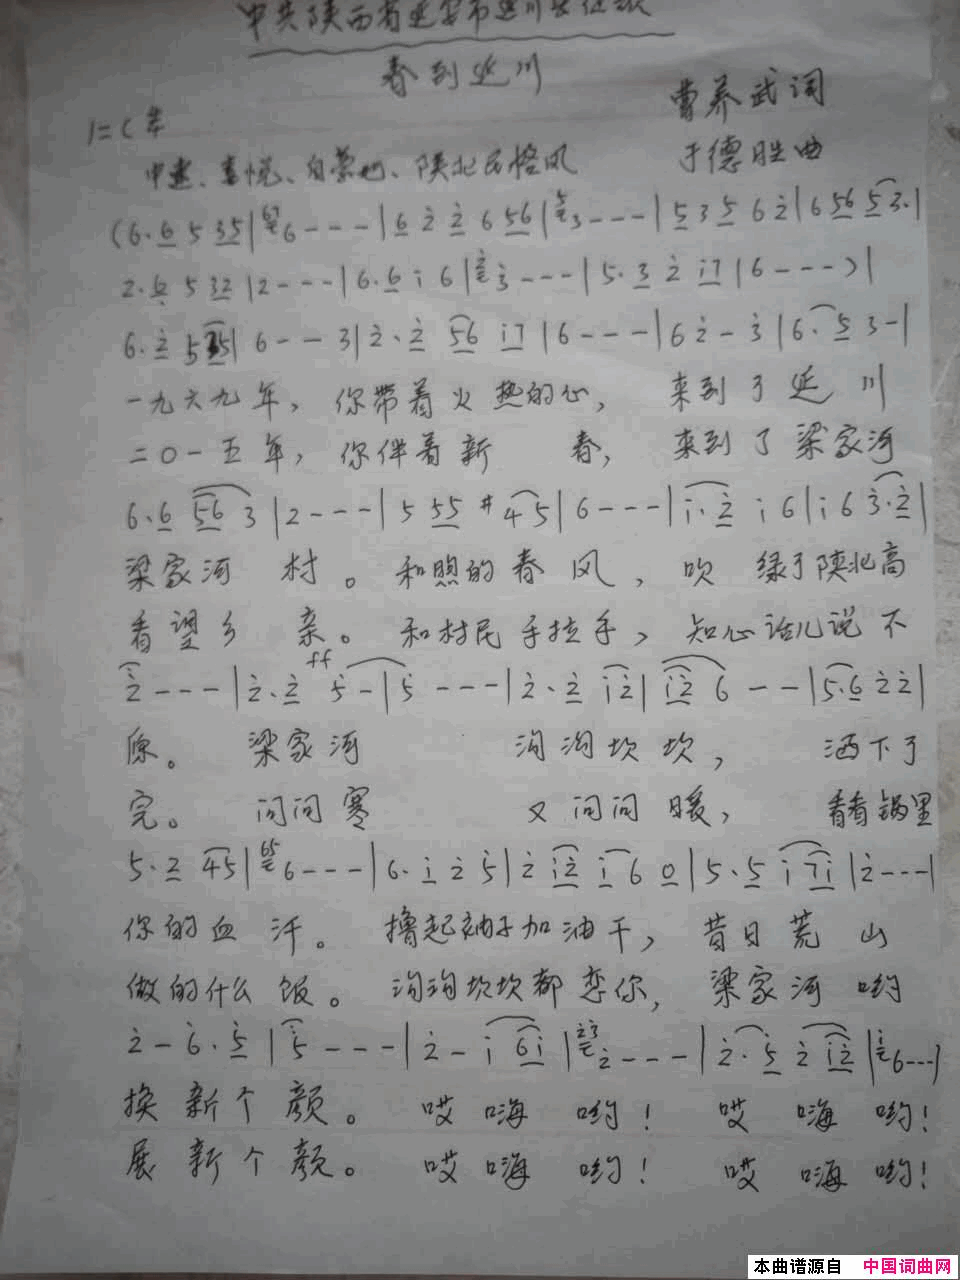 中共陕西省延安市延川县征歌
春到延川
1=C 4/4
曹养武词
中速、喜悦、自豪地、陕北民谣风
于德胜曲
(6·6 5 35|6---|6 2̇ 2̇ 6 56|3---|5 3 5 6 2̇|6 56 5 3·|
2·6 5 32|2---|6·6 i 6|3̇---|5·3 2̇ i7|6---)|
6·2̇ 5 35|6--3|2̇·2̇ 56 i7|6---|6 2̇-3̇|6·5 3-|
一九六九年，你带着火热的心，来到了延川
二〇一五年，你伴着新春，来到了梁家河
6·6 56 3|2---|5 55 #4 5|6---|i·2̇ i 6|i 6 3̇·2̇|
梁家河村。和煦的春风，吹绿了陕北高
看望乡亲。和村民手拉手，知心话儿说不
ff
2̇---|2̇·2̇ 5̇-|5̇---|2̇·2̇ i2̇|i2̇ 6--|5·6 2̇2̇|
原。梁家河沟沟坎坎，洒下了
完。问问寒又问问暖，看看锅里
5·2 45|6---|6·i 2̇ 5̇|2̇ i2̇ i 6 0|5·5 i 7i|2̇---|
你的血汗。撸起袖子加油干，昔日荒山
做的什么饭。沟沟坎坎都恋你，梁家河哟
2̇-6·5|5---|2̇-i 6i|2̇---|2̇·5 2̇ i2̇|6---|
换新个颜。哎嗨哟！哎嗨哟！
展新个颜。哎嗨哟！哎嗨哟！
本曲谱源自 中国词曲网